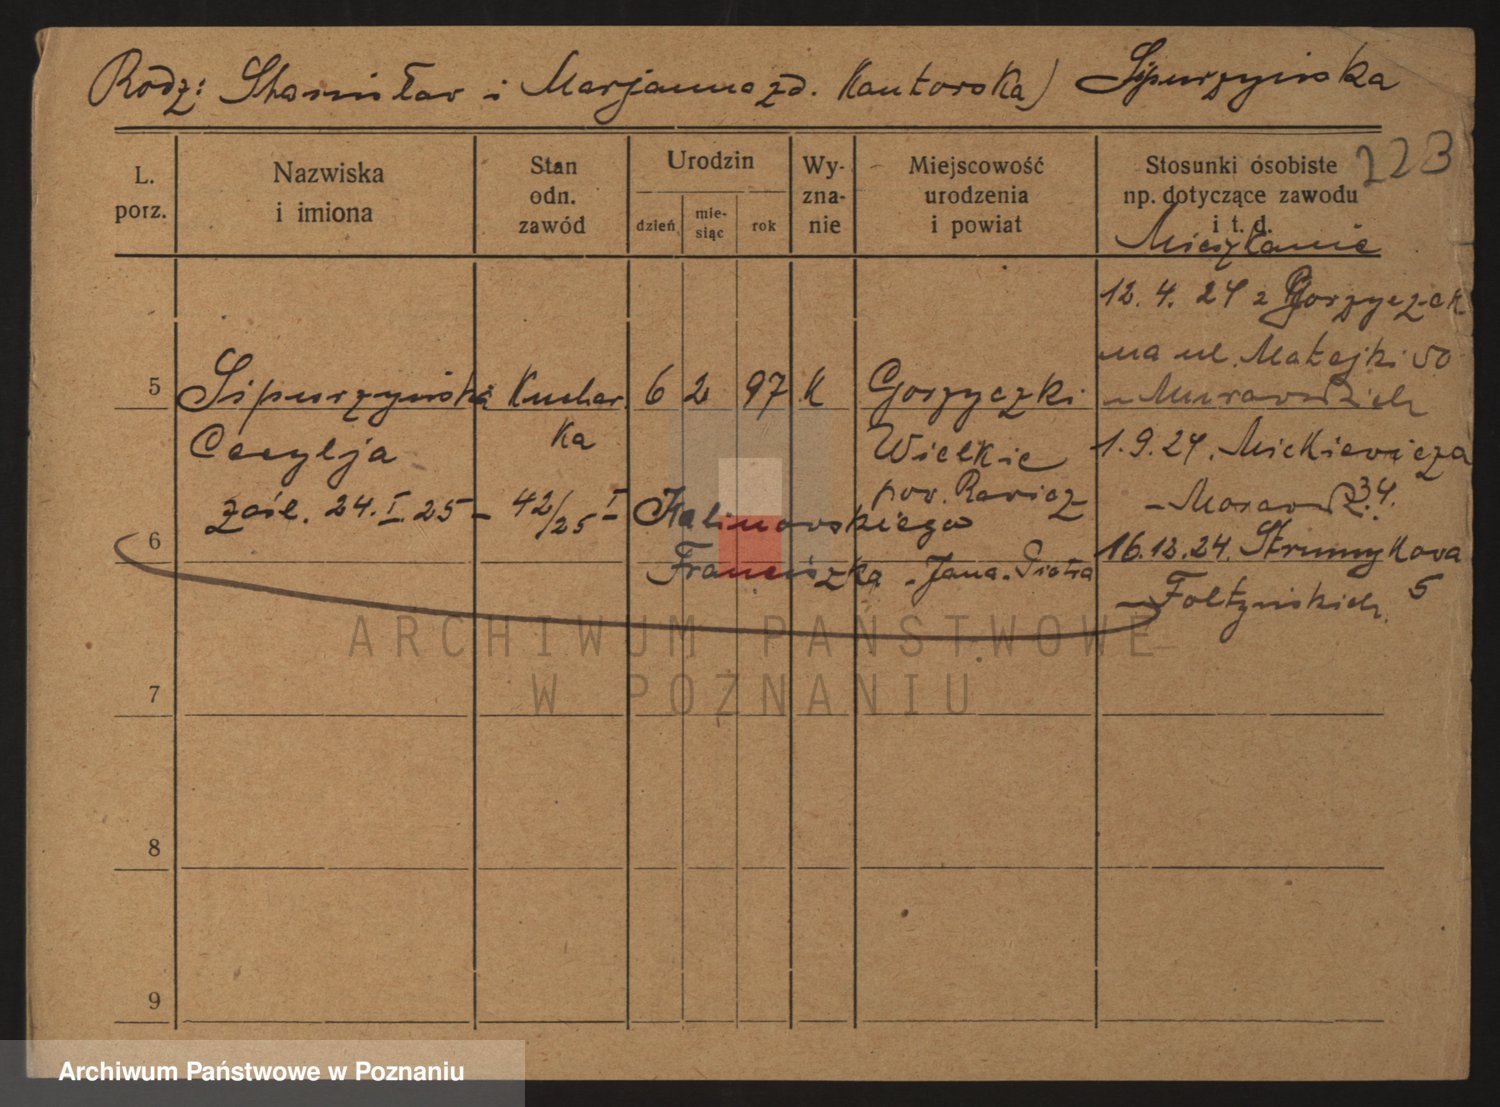 Rodz: Stanisław i Marjanna zd. Kantorska) Sipurzyńska
223
L. porz.
Nazwiska i imiona
Stan odn. zawód
Urodzin
dzień
mie- siąc
rok
Wy- zna- nie
Miejscowość urodzenia i powiat
Stosunki osobiste np. dotyczące zawodu i t. d.
Mieszkanie
12. 4. 24 z Gorzyczek
na ul. Matejki 50
5 Sipurzyńska Kuchar 6 2 97 K Gorzyczki
ka
Cecylja
Wielkie
pow. Rawicz
1.9.24. Mickiewicza
34.
zaśl. 24. I. 25 - 42/25 I Kalinowskiego
6
Franciszka - Jana - Piotra
16.12.24. Strumykowa
5
7
8
9
ARCHIWUM PAŃSTWOWE
W POZNANIU
Archiwum Państwowe w Poznaniu